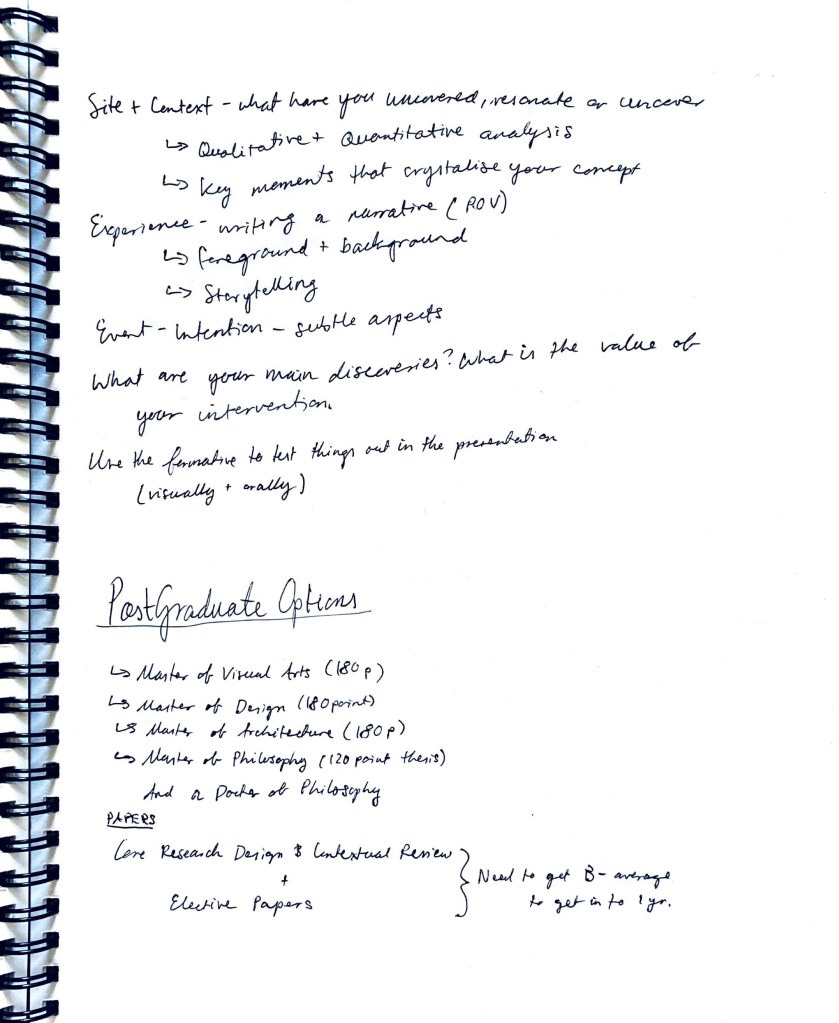 Site + Context - what have you uncovered, resonate or uncover
↳ Qualitative + Quantitative analysis
↳ Key moments that crystalise your concept
Experience - writing a narrative (POV)
↳ foreground + background
↳ Storytelling
Event - Intention - subtle aspects
What are your main discoveries? What is the value of
your intervention.
Use the formative to test things out in the presentation
(visually + orally)
PostGraduate Options
↳ Master of Visual Arts (180p)
↳ Master of Design (180point)
↳ Master of Architecture (180p)
↳ Master of Philosophy (120 point thesis)
And a Doctor of Philosophy
PAPERS
Core Research Design & Contextual Review
+
Elective Papers
} Need to get B- average
to get in to 1yr.